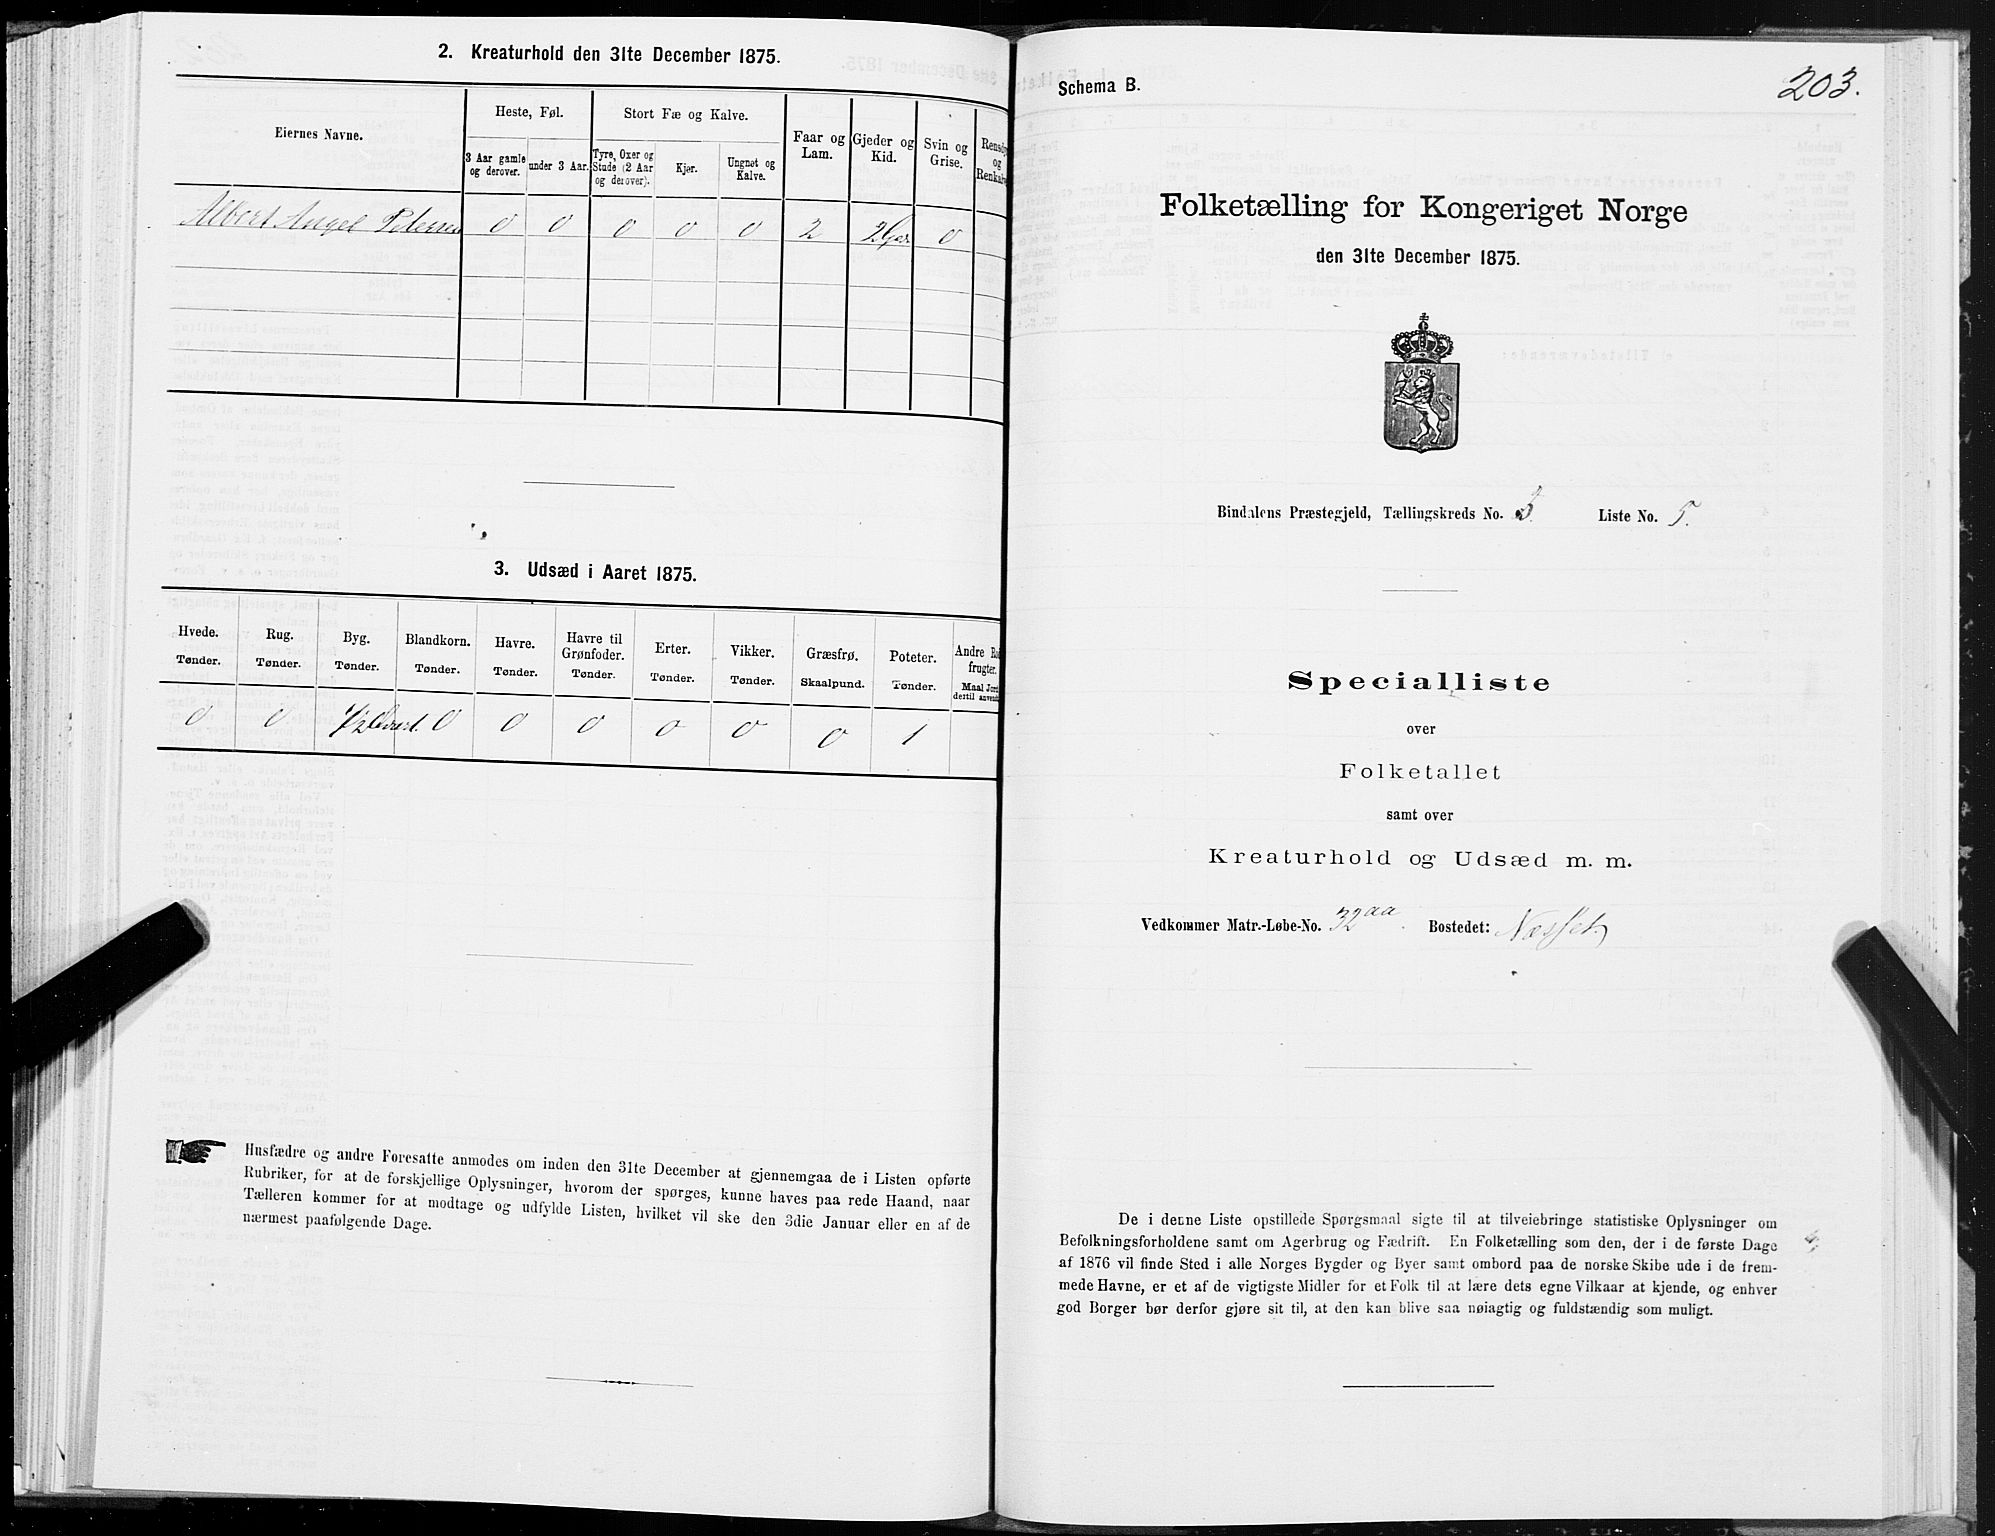 2. Kreaturhold den 31te December 1875.
Eiernes Navne.
Heste, Føl.
Stort Fæ og Kalve.
3 Aar gamle og derover.
under 3 Aar.
Tyre, Oxer og Stude (2 Aar og derover).
Kjør.
Ungnøt og Kalve.
Faar og Lam.
Gjeder og Kid.
Svin og Grise.
Rensdyr og Renkalve
Albert Angel Petersen 0 0 0 0 0 2 2 0
3. Udsæd i Aaret 1875.
Hvede. Tønder.
Rug. Tønder.
Byg. Tønder.
Blandkorn. Tønder.
Havre. Tønder.
Havre til Grønfoder. Tønder.
Erter. Tønder.
Vikker. Tønder.
Græsfrø. Skaalpund.
Poteter. Tønder.
Andre Ro frugter. Maal Jord dertil anvendt
0 0 1/2 0 0 0 0 0 0 1
Husfædre og andre Foresatte anmodes om inden den 31te December at gjennemgaa de i Listen opførte
Rubriker, for at de forskjellige Oplysninger, hvorom der spørges, kunne haves paa rede Haand, naar
Tælleren kommer for at modtage og udfylde Listen, hvilket vil ske den 3die Januar eller en af de
nærmest paafølgende Dage.
Schema B.
203.
Folketælling for Kongeriget Norge
den 31te December 1875.
Bindalens Præstegjeld, Tællingskreds No. 3. Liste No. 5.
Specialliste
over
Folketallet
samt over
Kreaturhold og Udsæd m. m.
Vedkommer Matr.-Løbe-No. 32aa. Bostedet: Næsset
De i denne Liste opstillede Spørgsmaal sigte til at tilveiebringe statistiske Oplysninger om
Befolkningsforholdene samt om Agerbrug og Fædrift. En Folketælling som den, der i de første Dage
af 1876 vil finde Sted i alle Norges Bygder og Byer samt ombord paa de norske Skibe ude i de frem-
mede Havne, er et af de vigtigste Midler for et Folk til at lære dets egne Vilkaar at kjende, og enhver
god Borger bør derfor gjøre sit til, at den kan blive saa nøiagtig og fuldstændig som muligt.